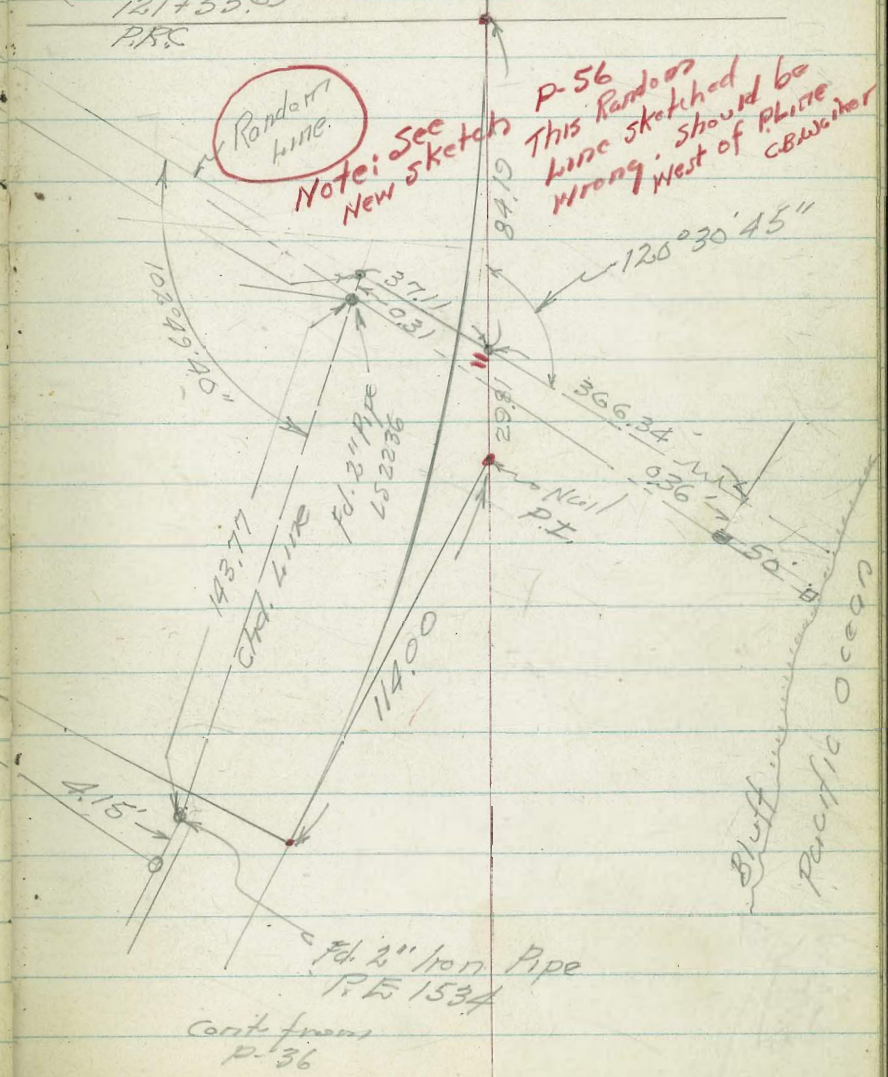 P.R.C
Random
Line.
Note: See
New Sketch
P-56
This Random
Line sketched
Wrong. Should be
West of P.Line
C.B.Walker
84.19
120°30'45"
102°49'40"
37.11
0.31'
29.81
366.34'
0.36'
50'
Nail
P.I.
Fd. 2" Pipe
LS 2236
143.77
Chd. Line
114.00
4.15'
Bluff
Pacific Ocean
Fd. 2" Iron Pipe
R.E 1534
Cont. from
P-36